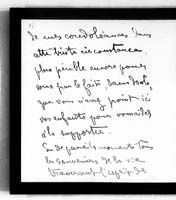 de mes condoléances dans
cette triste circonstance,
plus pénible encore pour
vous par le fait, sans doute,
que vous n'avez point ici
vos enfants pour vous aider
à la supporter.
En de pareils moments tous
les souvenirs de la vie
traversent l'esprit de